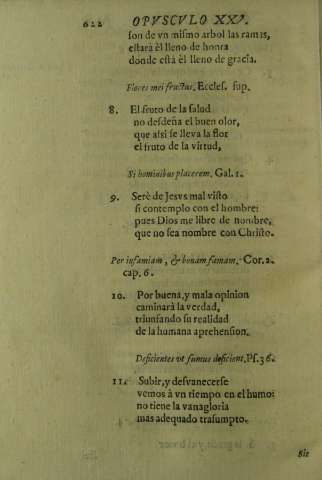 622 OPVSCVLO XXV.
son de vn mismo arbol las ramas,
estará èl lleno de honra
donde està èl lleno de gracia.
Flores mei fructus. Eccles. sup.
8. El fruto de la salud
no desdeña el buen olor,
que assi se lleva la flor
el fruto de la virtud,
Si hominibus placerem. Gal. 1.
9. Serè de Jesvs mal visto
si contemplo con el hombre:
pues Dios me libre de nombre,
que no sea nombre con Christo.
Per infamiam, & bonam famam. Cor. 2.
cap. 6.
10. Por buena, y mala opinion
caminarà la verdad,
triunfando su realidad
de la humana aprehension.
Deficientes vt fumus deficient. Ps. 36.
11. Subir, y desvanecerse
vemos à vn tiempo en el humo:
no tiene la vanagloria
mas adequado trasumpto.
Sic